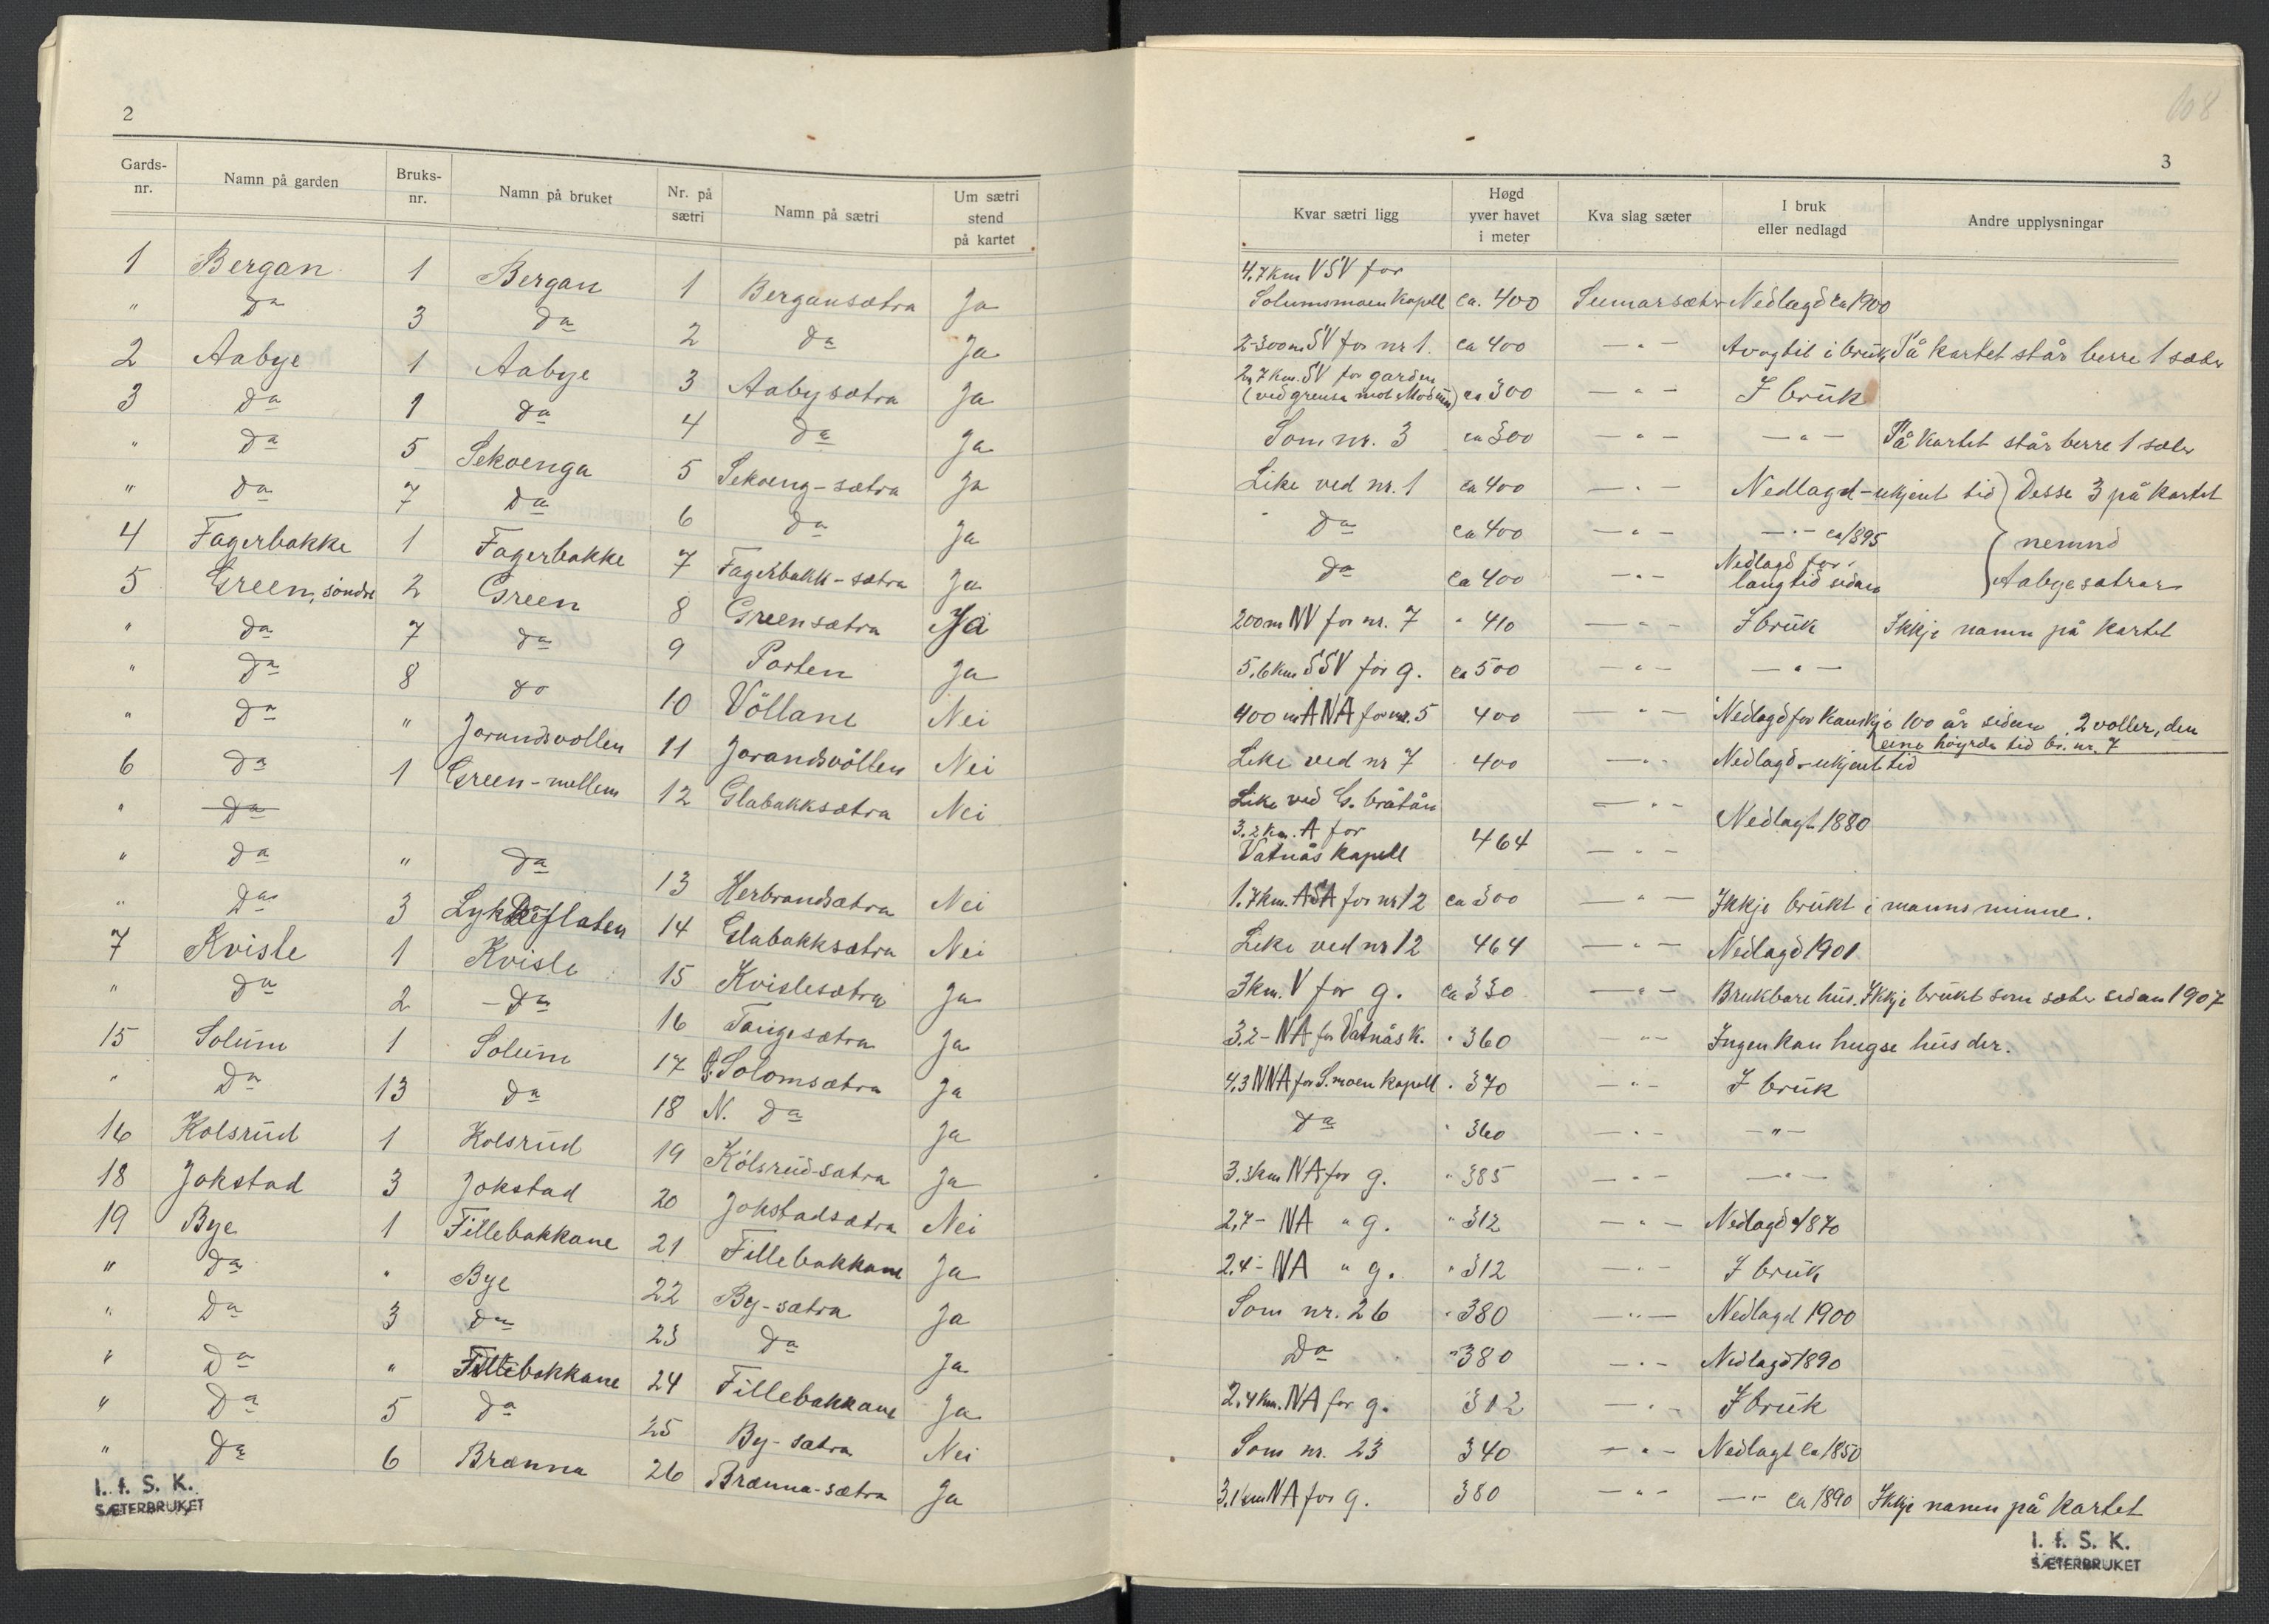 2
Gards-nr. Namn på garden Bruks-nr. Namn på bruket Nr. på sætri Namn på sætri Um sætri stend på kartet
1 Bergan 1 Bergan 1 Bergansætra Ja
" Da 3 Da 2 Da Ja
2 Aabye 1 Aabye 3 Aabysætra Ja
3 Da 1 Da 4 Da Ja
" Da 5 Sekoenga 5 Sekoeng-sætra Ja
" Da 7 Da 6 Da Ja
4 Fagerbakke 1 Fagerbakke 7 Fagerbakk-sætra Ja
5 Green, söndre 2 Green 8 Greensætra Ja
" Da 7 Da 9 Porten Ja
" Da 8 do 10 Völlane Nei
" Da " Jorandsvollen 11 Jorandsvöllen Nei
6 Da 1 Green-mellem 12 Glabakksætra Nei
" Da
" Da " Da 13 Herbrandsætra Nei
" Da 3 Lykkjeflaten 14 Glabakksætra Nei
7 Kvisle 1 Kvisle 15 Kvislesætra Ja
" Da 2 - Da 16 Tangesætra Ja
15 Solum 1 Solum 17 S. Solomsætra Ja
" Da 13 Da 18 N. Da Ja
16 Kolsrud 1 Kolsrud 19 Kolsrud-sætra Ja
18 Jokstad 3 Jokstad 20 Jokstadsætra Nei
19 Bye 1 Fillebakkane 21 Fillebakkane Ja
" Da " Bye 22 By-sætra Ja
" Da 3 Da 23 Da Ja
" Da " Fillebakkane 24 Fillebakkane Ja
" Da 5 Da 25 By-sætra Nei
" Da 6 Brænna 26 Brænna-sætra Ja
I. f. S. K.
SÆTERBRUKET
108
3
Kvar sætri ligg Høgd yver havet i meter Kva slag sæter I bruk eller nedlagd Andre upplysningar
4,7 km VSV for
Solumsmoen Kapell ca. 400 Sumarsæter Nedlagd ca 1900
2-300 m SV for nr 1. ca 400 — " — Avogtil i bruk På kartet står berre 1 sæter
2,7 km. SV for garden
(ved grensa mot Modum) ca 300 — " — I bruk
Som nr. 3 ca 300 — " — — " — På kartet står berre 1 sæter
Like ved nr. 1 ca 400 — " — Nedlagd - ukjent tid Desse 3 på kartet
Da ca 400 — " — — " — ca 1895 nemnd
Da ca 400 — " — Nedlagd for langtid sidan Aabyesætrar
200 m NV for nr. 7 " 410 — " — I bruk Ikkje namn på kartet
5,6 km SSV for g. ca 500 — " — — " —
400 m ANA for nr. 5 400 — " — Nedlagd for kanskje 100 år sidan. 2 voller, den
eine høyrde tid br. nr. 7
Like ved nr 7 400 — " — Nedlagd - ukjent tid
Like ved G. bråtån — " —
3,2 km. A for
Vatnås kapell 464 — " — Nedlagt 1880
1,7 km. ASA for nr 12 ca 300 — " — Ikkje brukt i manns minne.
Like ved nr 12 464 — " — Nedlagd 1901
3 km. V for g. ca 330 — " — Brukbare hus. Ikkje brukt som sæter sidan 1907
3,2 - NA for Vatnås K. " 360 — " — Ingen kan hugse hus der.
4,3 NNA for S.moen Kapell " 370 — " — I bruk
Da " 360 — " — — " —
3.3km NA for g. " 385 — " — — " —
2,7 - NA " g. " 312 — " — Nedlagd 1870
2,4 - NA " g. " 312 — " — I bruk
Som nr. 26 " 380 — " — Nedlagd 1900
Da " 380 — " — Nedlagd 1890
2,4 km. NA for g. 312 — " — I bruk
Som nr. 23 340 — " — Nedlagt ca 1850
3,1 km NA for g. 380 — " — — " — ca 1890 Ikkje namn på kartet
I. f. S. K.
SÆTERBRUKET